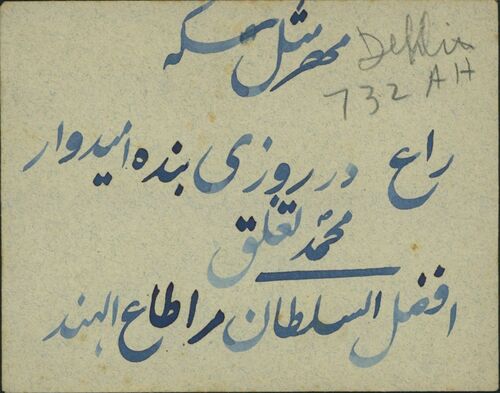 مهر مثل سکه
Dehli
732 AH
راع در روزی بنده امیدوار
محمد تغلق
افضل السلطان مر اطاع الهند